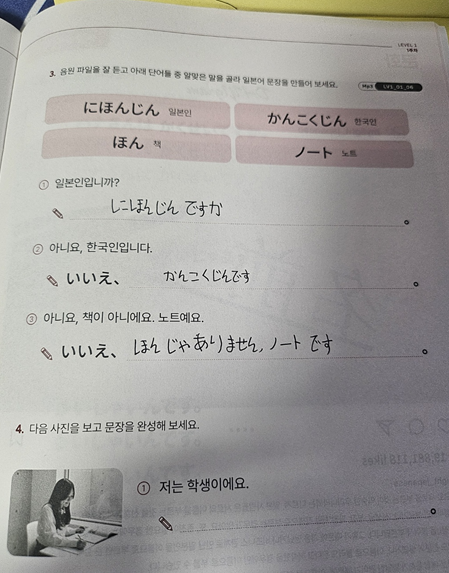 LEVEL 1
3. 음원 파일을 잘 듣고 아래 단어들 중 알맞은 말을 골라 일본어 문장을 만들어 보세요. Mp3 LV1_01_06
にほんじん 일본인
かんこくじん 한국인
ほん 책
ノート 노트
① 일본인입니까?
にほんじん ですか
② 아니요, 한국인입니다.
いいえ、 かんこくじんです
③ 아니요, 책이 아니에요. 노트예요.
いいえ、 ほん じゃありません, ノート です
4. 다음 사진을 보고 문장을 완성해 보세요.
① 저는 학생이에요.